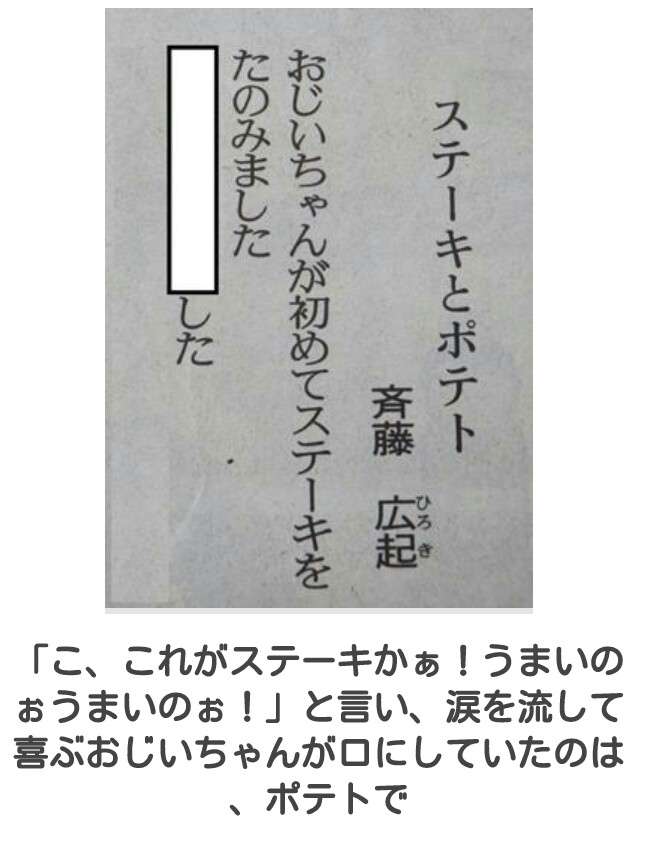 ステーキとポテト
斉藤 広起
ひろき
おじいちゃんが初めてステーキを
たのみました
した
「こ、これがステーキかぁ！うまいの
ぉうまいのぉ！」と言い、涙を流して
喜ぶおじいちゃんが口にしていたのは
、ポテトで